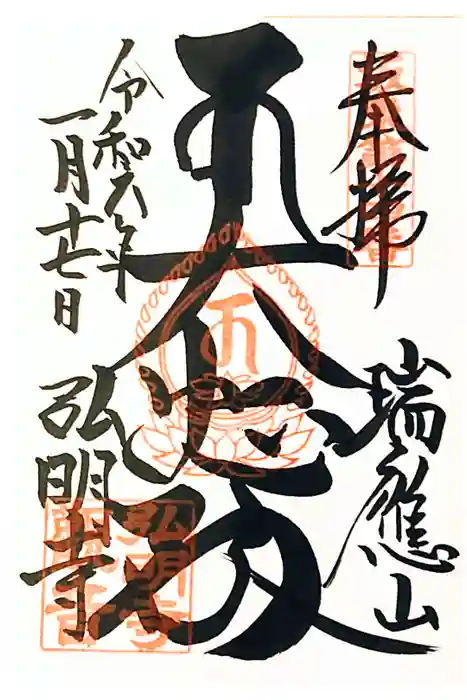 奉拝
瑞應山
大悲殿
令和六年
一月十七日
弘明寺
弘明寺